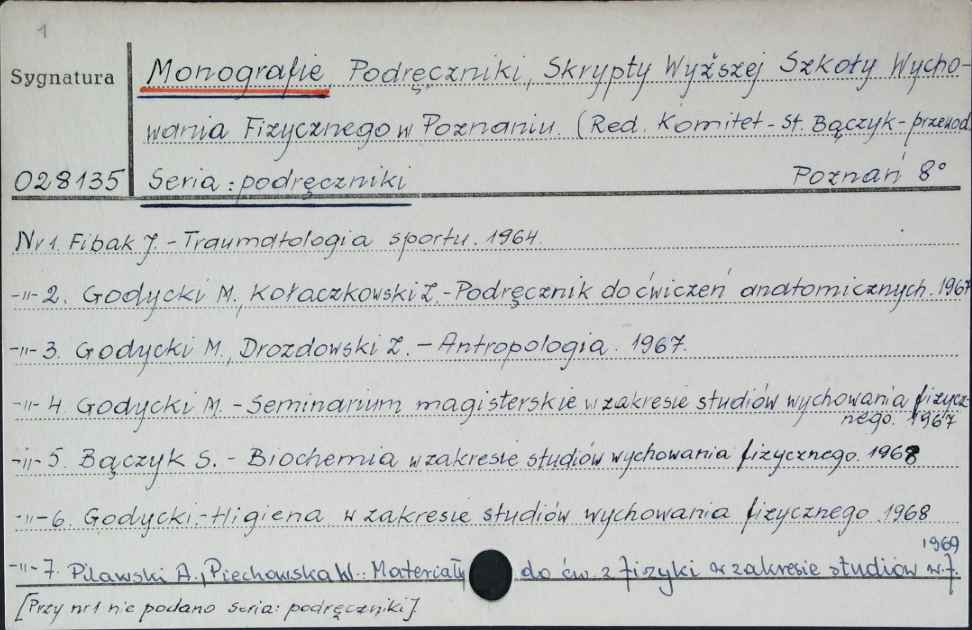 1
Sygnatura
Monografie Podręczniki, Skrypty Wyższej Szkoły Wycho-
wania Fizycznego w Poznaniu. (Red. Komitet - St. Bączyk - przewod
028135 Seria: podręczniki Poznań 8°
Nr 1. Fibak J. - Traumatologia sportu. 1964.
-"- 2. Godycki M., Kołaczkowski Z. - Podręcznik do ćwiczeń anatomicznych. 1967
-"- 3. Godycki M., Drozdowski Z. - Antropologia. 1967.
-"- 4. Godycki M. - Seminarium magisterskie w zakresie studiów wychowania fizycz-
nego. 1967
-"- 5. Bączyk S. - Biochemia w zakresie studiów wychowania fizycznego. 1968
-"- 6. Godycki. - Higiena w zakresie studiów wychowania fizycznego. 1968
1969
-"- 7. Pilawski A., Piechowska W.: Materiały do ćw. z fizyki w zakresie studiów w.f.
[Przy nr 1 nie podano Seria: podręczniki].